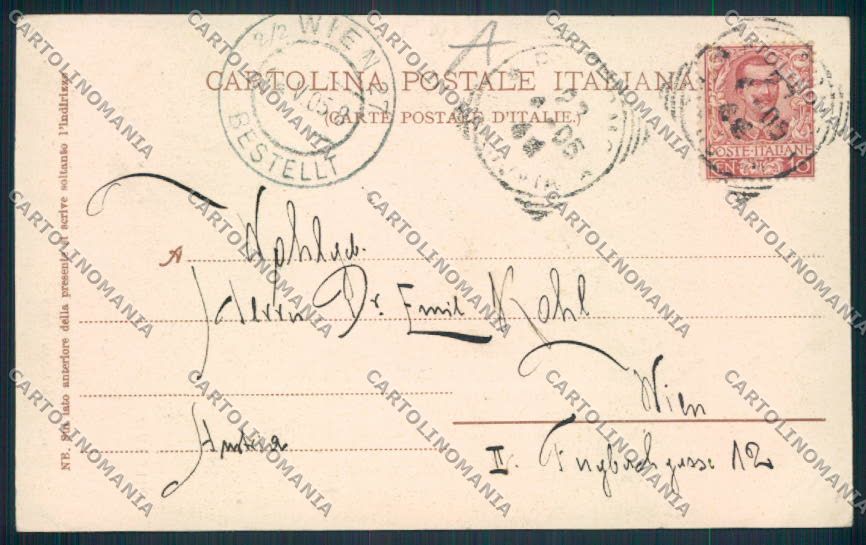 CARTOLINA POSTALE ITALIANA
(CARTE POSTALE D'ITALIE.)
2/2 WIEN 27
BESTELLT
POSTE·ITALIANE
CARTOLINOMANIA
NB. Sul lato anteriore della presente si scrive soltanto l'indirizzo
A
Wohlgeb.
Herrn Dr. Emil Kohl
Wien
Austria
II. 12